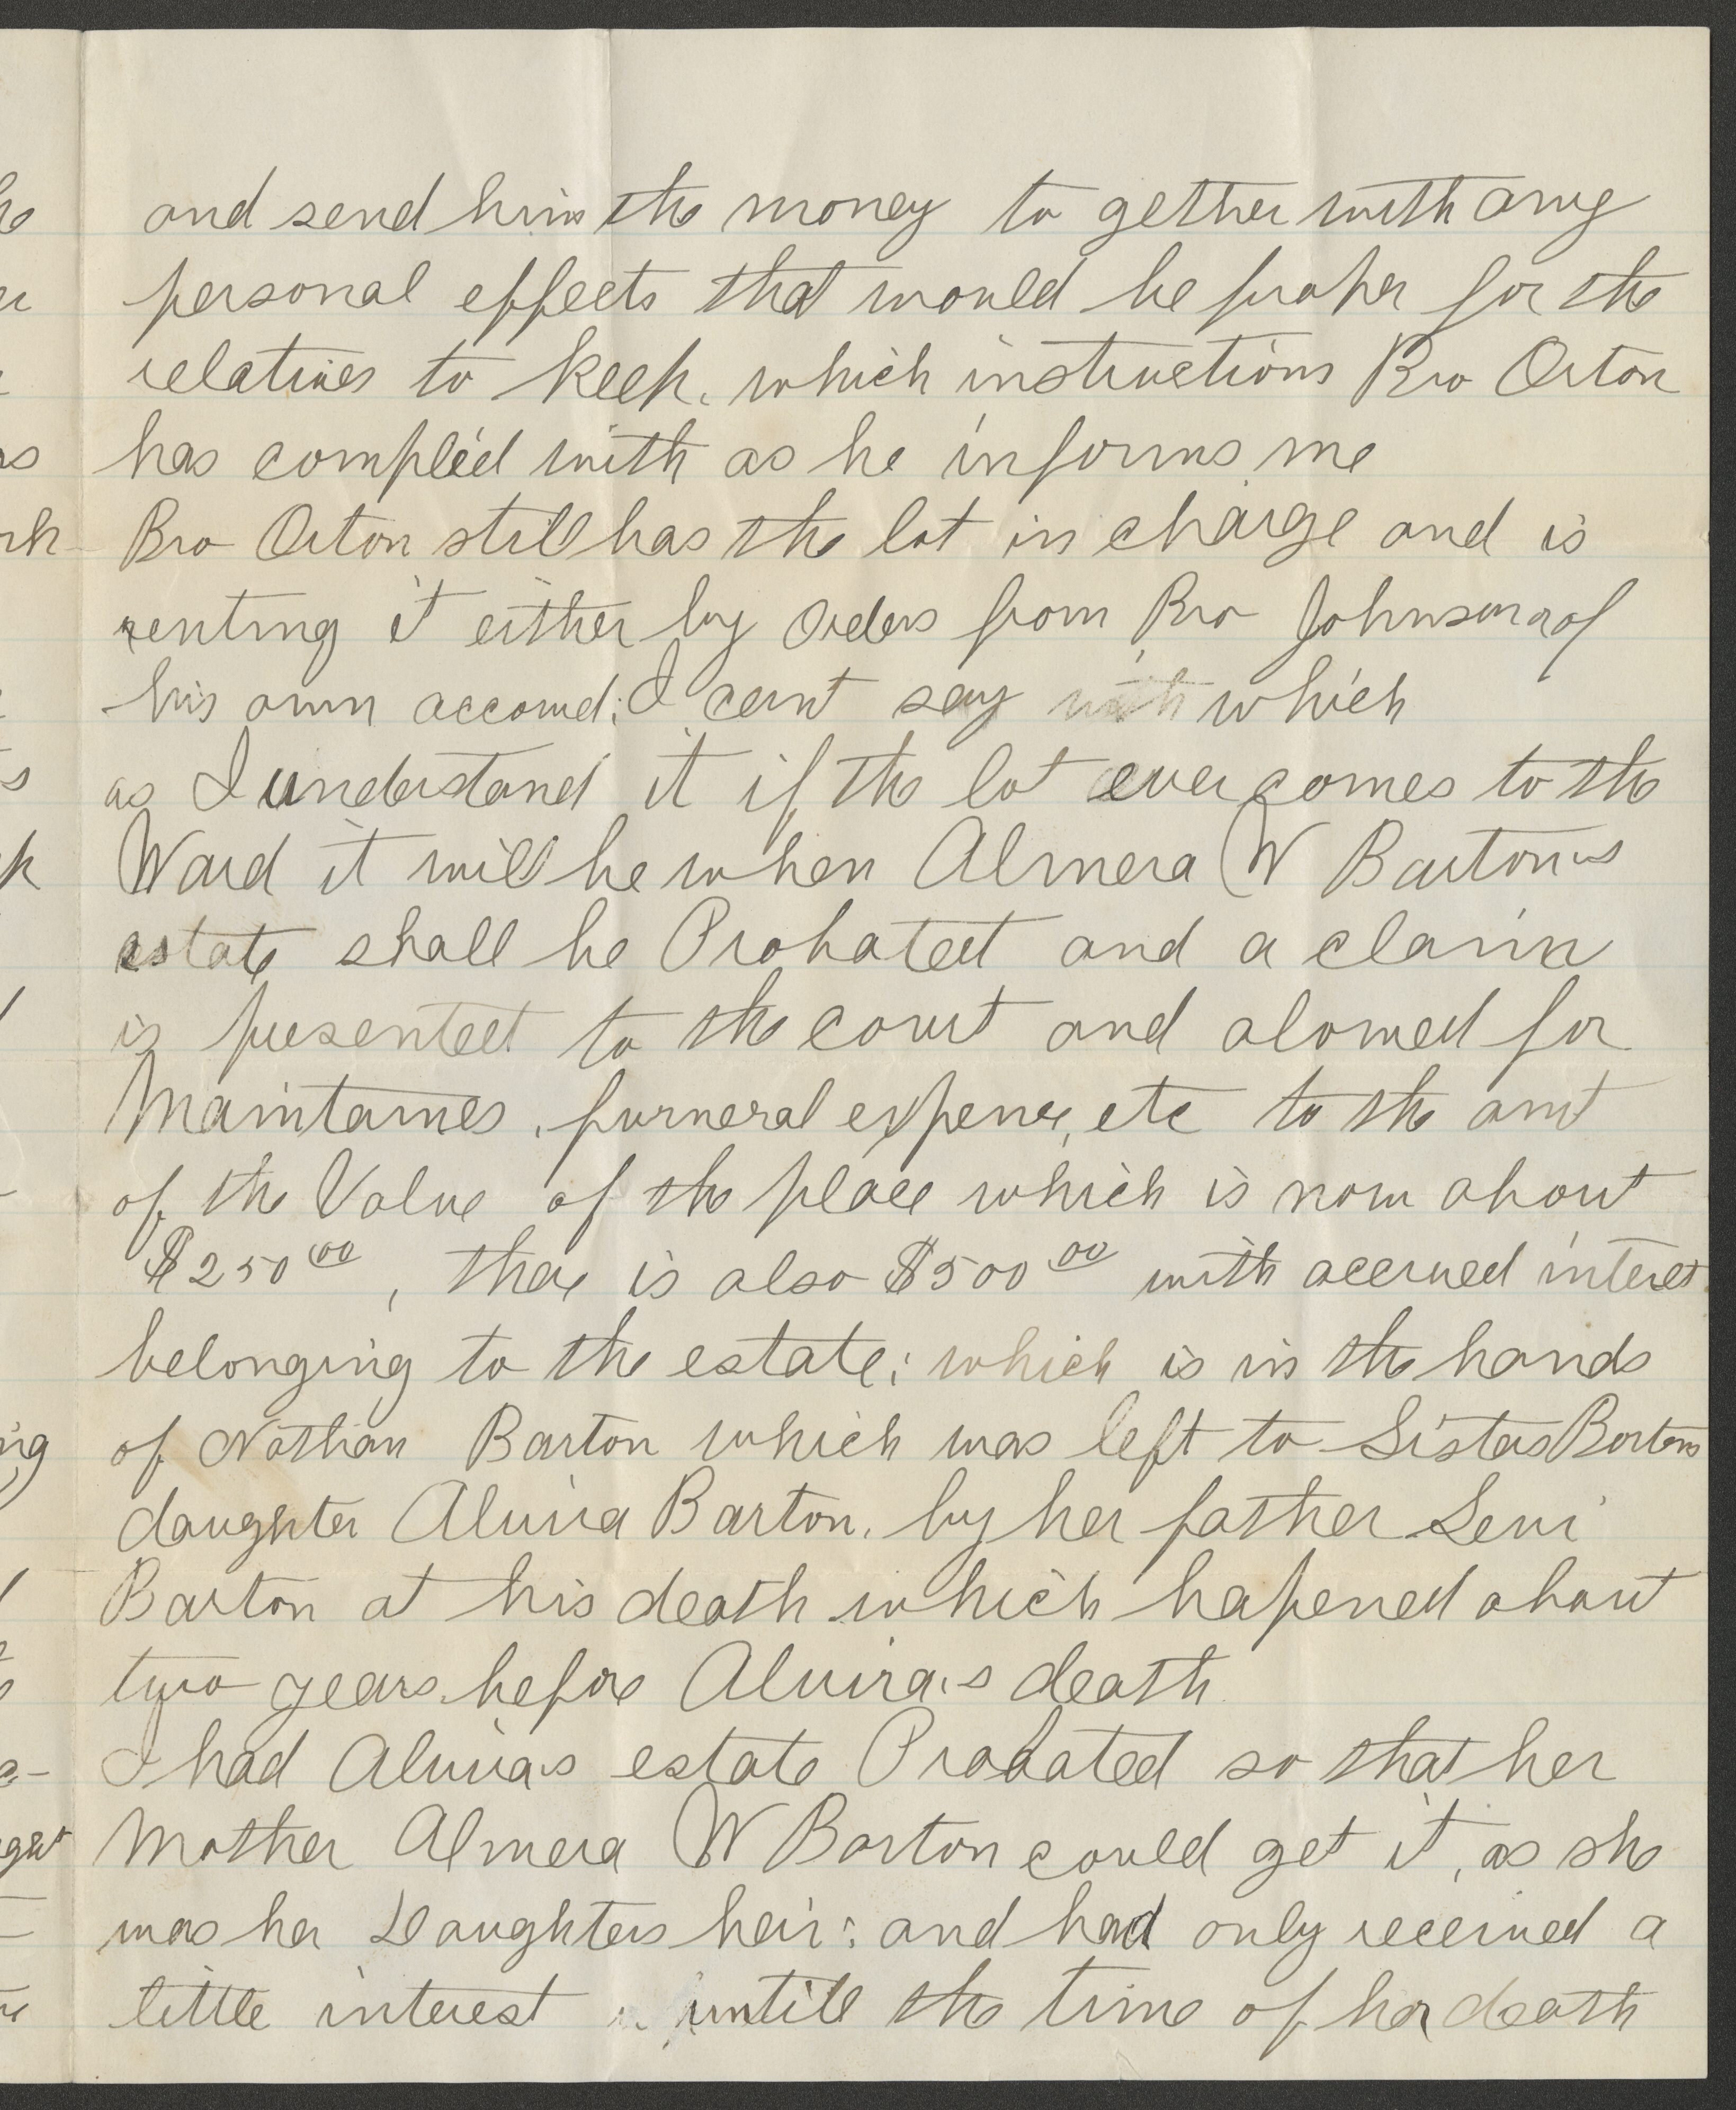 and send him the money to gether with any
personal effects that would be proper for the
relatives to keep. which instructions Bro Orton
has complied with as he informs me
Bro Orton still has the lot in charge and is
renting it either by orders from Bro Johnson or of
his own accord; I cant say which
as I understand it if the lot ever comes to the
Ward it will be when Almera W Barton's
estate shall be Probated and a claim
is presented to the court and alowed for
Maintaines, furneral expenes, etc to the amt
of the Value of the place which is now about
$250 00, thare is also $500 00 with accrued interest
belonging to the estate; which is in the hands
of Nathan Barton which was left to Sisters Bartons
daughter Alvira Barton, by her father Levi
Barton at his death which hapened about
two years before Alvira's death
I had Alvira's estate Probated so that her
Mother Almera W Barton could get it, as she
was her Daughters heir: and had only received a
little interest untill the time of her death